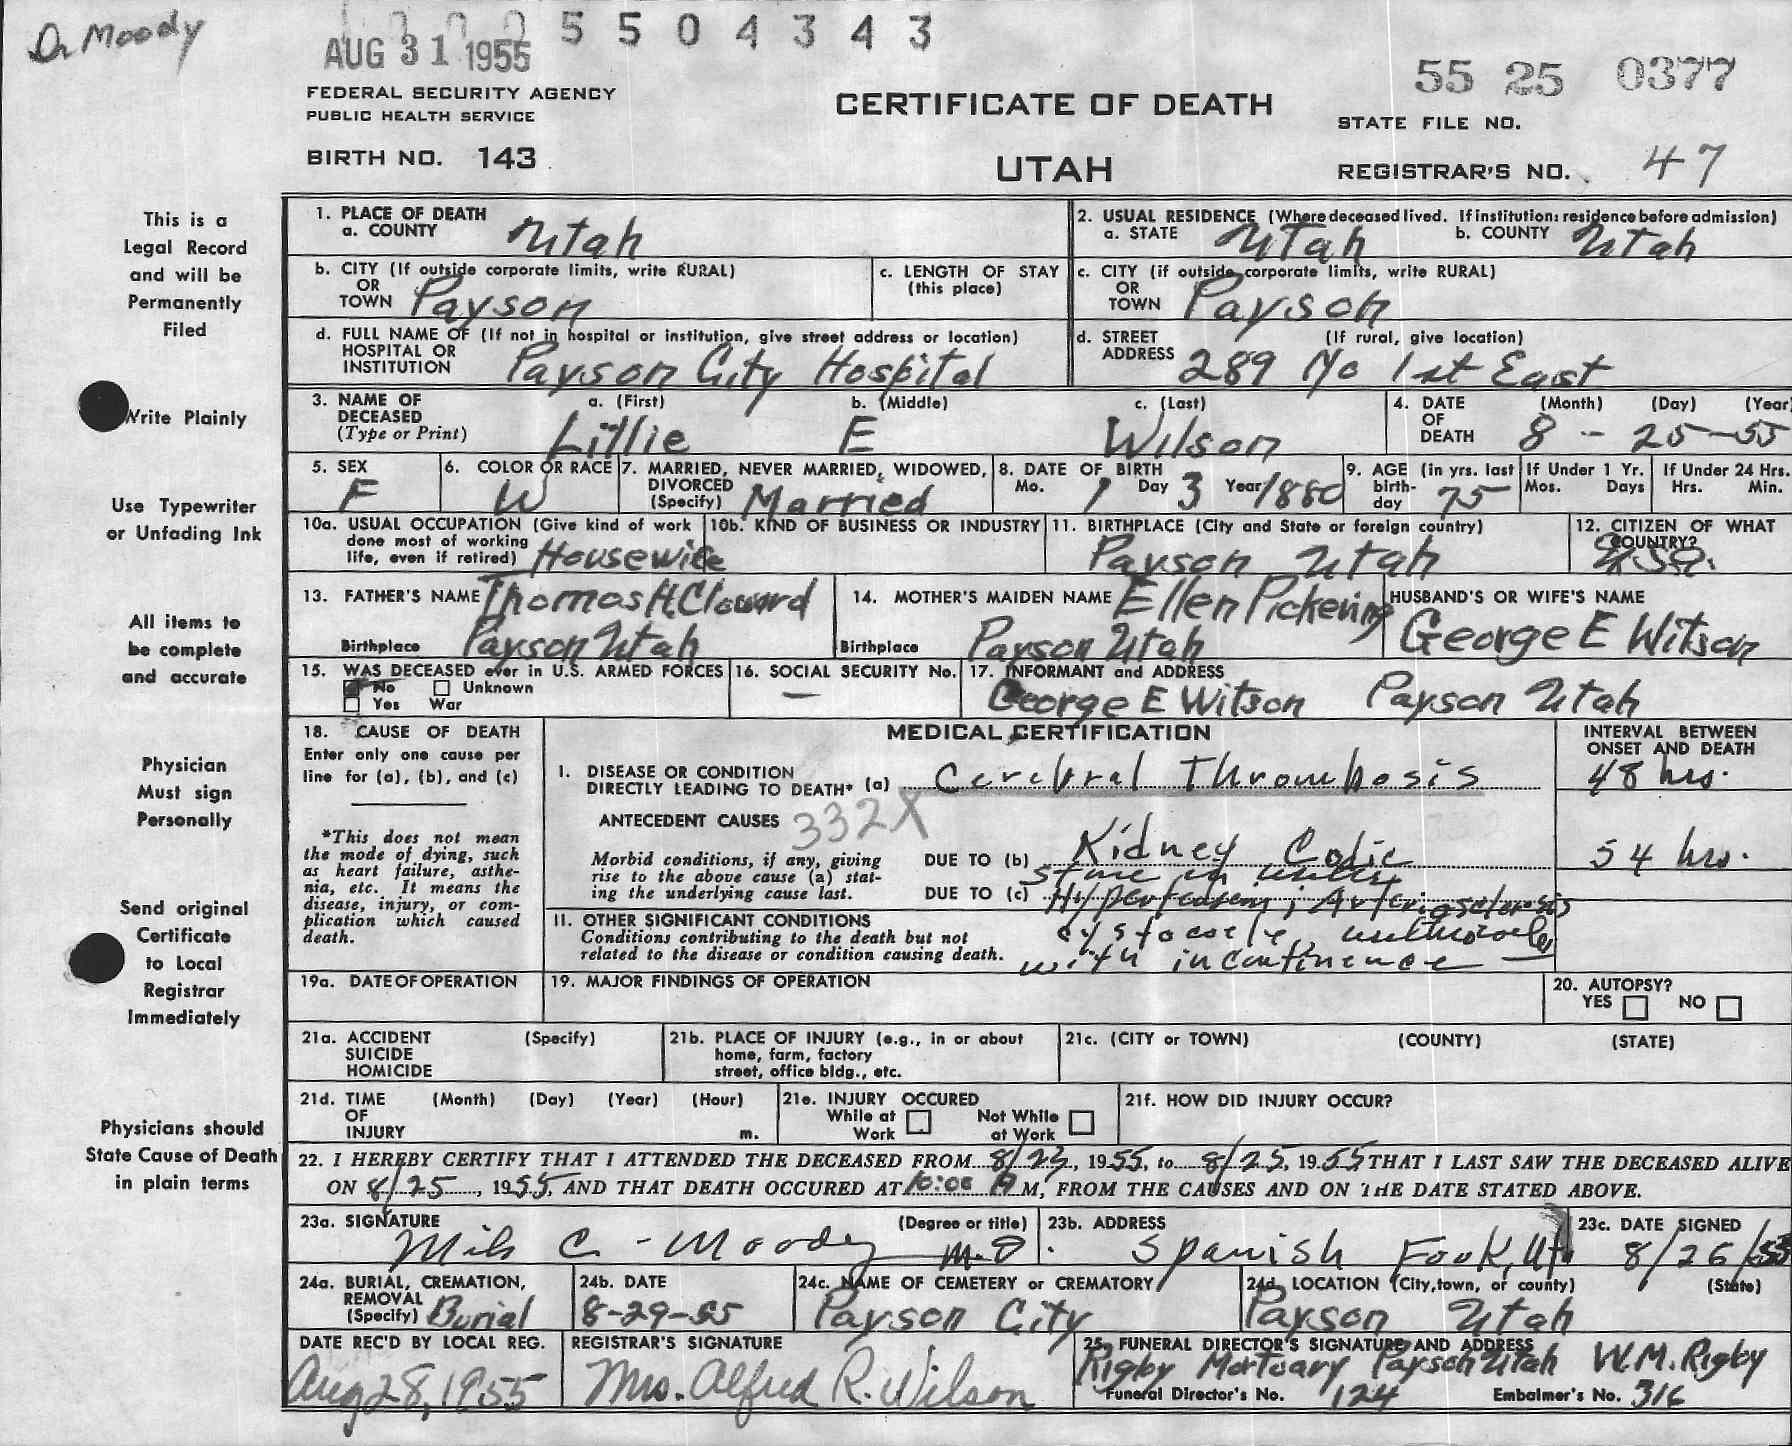 Dr Moody
5 5 0 4 3 4 3
AUG 31 1955
55 25 0377
FEDERAL SECURITY AGENCY
PUBLIC HEALTH SERVICE
CERTIFICATE OF DEATH
STATE FILE NO.
BIRTH NO. 143
UTAH
REGISTRAR'S NO. 47
This is a
Legal Record
and will be
Permanently
Filed
Write Plainly
Use Typewriter
or Unfading Ink
All items to
be complete
and accurate
Physician
Must sign
Personally
Send original
Certificate
to Local
Registrar
Immediately
Physicians should
State Cause of Death
in plain terms
1. PLACE OF DEATH
a. COUNTY Utah
2. USUAL RESIDENCE (Where deceased lived. If institution: residence before admission)
a. STATE Utah b. COUNTY Utah
b. CITY (If outside corporate limits, write RURAL)
OR
TOWN Payson
c. LENGTH OF STAY
(this place)
c. CITY (if outside corporate limits, write RURAL)
OR
TOWN Payson
d. FULL NAME OF (If not in hospital or institution, give street address or location)
HOSPITAL OR
INSTITUTION Payson City Hospital
d. STREET (If rural, give location)
ADDRESS 289 No 1st East
3. NAME OF a. (First) b. (Middle) c. (Last)
DECEASED
(Type or Print) Lillie E Wilson
4. DATE (Month) (Day) (Year)
OF
DEATH 8 - 25 - 55
5. SEX
F
6. COLOR OR RACE
W
7. MARRIED, NEVER MARRIED, WIDOWED,
DIVORCED
(Specify) Married
8. DATE OF BIRTH
Mo. 1 Day 3 Year 1880
9. AGE (in yrs. last
birth-
day 75
If Under 1 Yr.
Mos. Days
If Under 24 Hrs.
Hrs. Min.
10a. USUAL OCCUPATION (Give kind of work
done most of working
life, even if retired) Housewife
10b. KIND OF BUSINESS OR INDUSTRY
11. BIRTHPLACE (City and State or foreign country)
Payson Utah
12. CITIZEN OF WHAT
COUNTRY?
13. FATHER'S NAME Thomas H. Cloward
Birthplace Payson Utah
14. MOTHER'S MAIDEN NAME Ellen Pickering
Birthplace Payson Utah
HUSBAND'S OR WIFE'S NAME
George E Wilson
15. WAS DECEASED ever in U.S. ARMED FORCES
No Unknown
Yes War
16. SOCIAL SECURITY No.
—
17. INFORMANT and ADDRESS
George E Wilson Payson Utah
18. CAUSE OF DEATH
Enter only one cause per
line for (a), (b), and (c)
*This does not mean
the mode of dying, such
as heart failure, asthe-
nia, etc. It means the
disease, injury, or com-
plication which caused
death.
MEDICAL CERTIFICATION
INTERVAL BETWEEN
ONSET AND DEATH
I. DISEASE OR CONDITION
DIRECTLY LEADING TO DEATH* (a) Cerebral Thrombosis 48 hrs.
ANTECEDENT CAUSES 332X
Morbid conditions, if any, giving
rise to the above cause (a) stat-
ing the underlying cause last.
DUE TO (b) Kidney Colic 54 hrs.
stone in
DUE TO (c) Hypertension; Arteriosclerosis
II. OTHER SIGNIFICANT CONDITIONS
Conditions contributing to the death but not
related to the disease or condition causing death.
cystocele,
with incontinence
19a. DATE OF OPERATION
19. MAJOR FINDINGS OF OPERATION
20. AUTOPSY?
YES NO
21a. ACCIDENT (Specify)
SUICIDE
HOMICIDE
21b. PLACE OF INJURY (e.g., in or about
home, farm, factory
street, office bldg., etc.
21c. (CITY or TOWN) (COUNTY) (STATE)
21d. TIME (Month) (Day) (Year) (Hour)
OF
INJURY m.
21e. INJURY OCCURED
While at Work Not While at Work
21f. HOW DID INJURY OCCUR?
22. I HEREBY CERTIFY THAT I ATTENDED THE DECEASED FROM 8/23, 1955, to 8/25, 1955 THAT I LAST SAW THE DECEASED ALIVE
ON 8/25, 1955, AND THAT DEATH OCCURED AT 10:00 M, FROM THE CAUSES AND ON THE DATE STATED ABOVE.
23a. SIGNATURE (Degree or title)
C. Moody M.D.
23b. ADDRESS
Spanish Fork, Ut
23c. DATE SIGNED
8/26/55
24a. BURIAL, CREMATION,
REMOVAL
(Specify) Burial
24b. DATE
8-29-55
24c. NAME OF CEMETERY or CREMATORY
Payson City
24d. LOCATION (City, town, or county) (State)
Payson Utah
DATE REC'D BY LOCAL REG.
Aug 28, 1955
REGISTRAR'S SIGNATURE
Mrs. Alfred R. Wilson
25. FUNERAL DIRECTOR'S SIGNATURE AND ADDRESS
Rigby Mortuary Payson Utah W.M. Rigby
Funeral Director's No. 124 Embalmer's No. 316